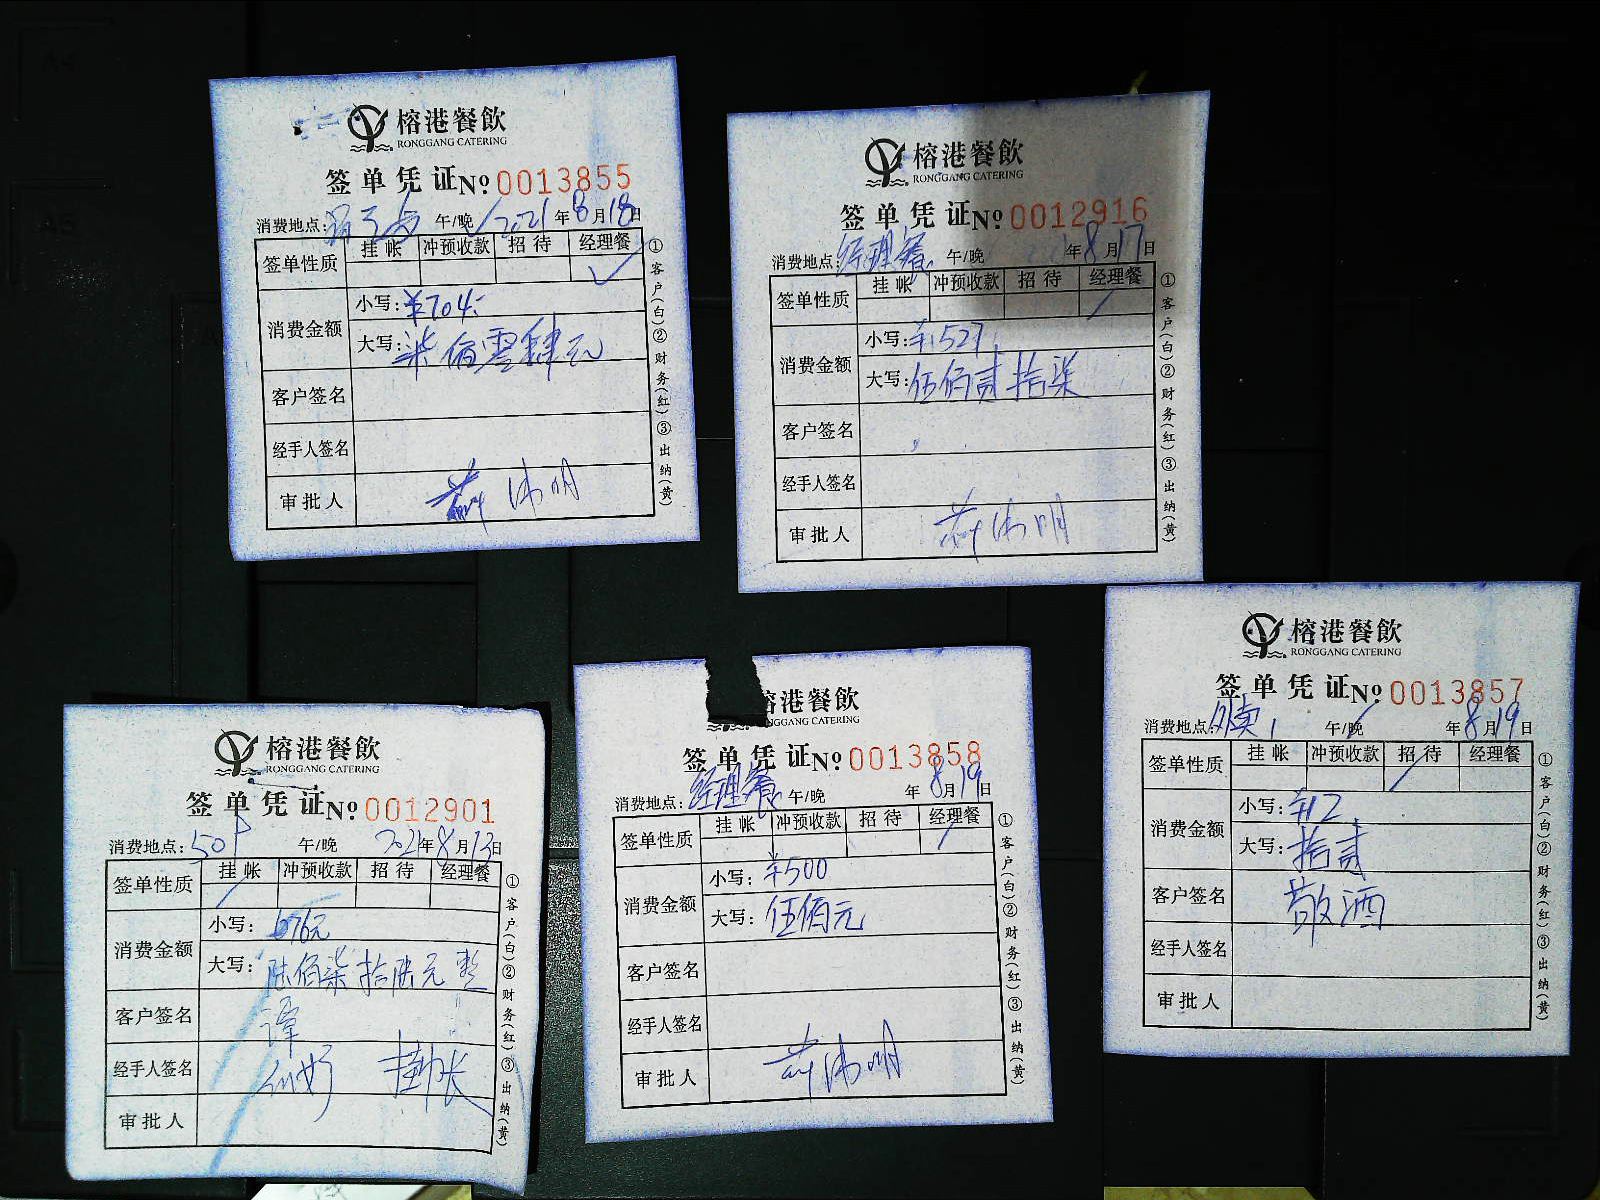 榕港餐飲
RONGGANG CATERING
签单凭证 No 0013855
消费地点: 午/晚 2021年8月18日
挂帐 冲预收款 招待 经理餐
签单性质 ✓
消费金额
小写: ¥704.-
大写: 柒佰零肆元
客户签名
经手人签名
审批人
①客户(白)②财务(红)③出纳(黄)
榕港餐飲
RONGGANG CATERING
签单凭证 No 0012916
消费地点: 经理餐 午/晚 年8月17日
挂帐 冲预收款 招待 经理餐
签单性质
消费金额
小写: ¥527.
大写: 伍佰贰拾柒
客户签名
经手人签名
审批人
①客户(白)②财务(红)③出纳(黄)
榕港餐飲
RONGGANG CATERING
签单凭证 No 0012901
消费地点: 午/晚 2021年8月13日
挂帐 冲预收款 招待 经理餐
签单性质
消费金额
小写: 676元
大写: 陆佰柒拾陆元整
客户签名 谭
经手人签名
审批人
①客户(白)②财务(红)③出纳(黄)
榕港餐飲
RONGGANG CATERING
签单凭证 No 0013858
消费地点: 经理餐 午/晚 年8月19日
挂帐 冲预收款 招待 经理餐
签单性质
消费金额
小写: ¥500
大写: 伍佰元
客户签名
经手人签名
审批人
①客户(白)②财务(红)③出纳(黄)
榕港餐飲
RONGGANG CATERING
签单凭证 No 0013857
消费地点: 外卖 午/晚 年8月19日
挂帐 冲预收款 招待 经理餐
签单性质
消费金额
小写: ¥12.
大写: 拾贰
客户签名 敬酒
经手人签名
审批人
①客户(白)②财务(红)③出纳(黄)